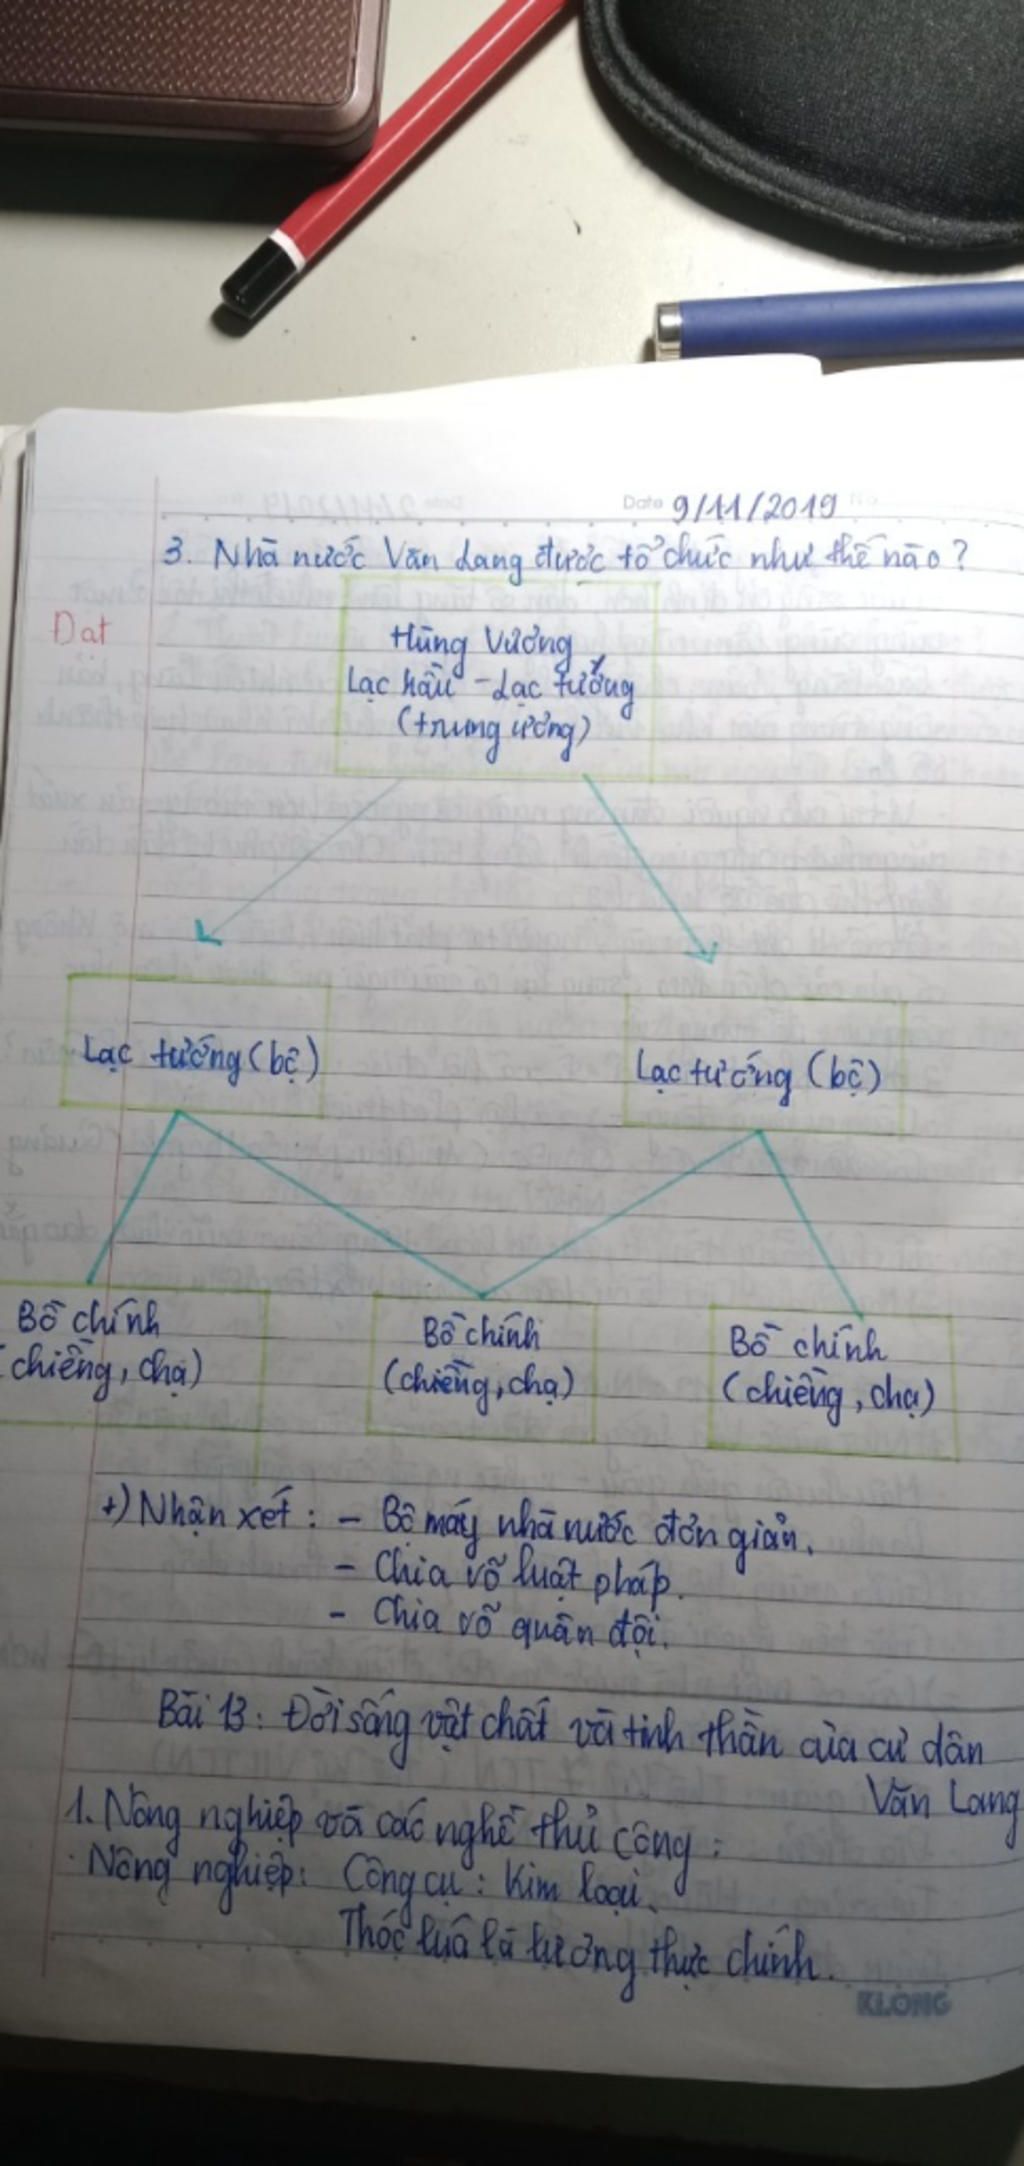 Date 9/11/2019
3. Nhà nước Văn Lang được tổ chức như thế nào?
Đạt
Hùng Vương
Lạc hầu - Lạc tướng
(trung ương)
Lạc tướng (bộ)
Lạc tướng (bộ)
Bồ chính
(chiềng, chạ)
Bồ chính
(chiềng, chạ)
Bồ chính
(chiềng, chạ)
+) Nhận xét: - Bộ máy nhà nước đơn giản.
- Chia võ luật pháp.
- Chia võ quân đội.
Bài 13: Đời sống vật chất và tinh thần của cư dân
Văn Lang
1. Nông nghiệp và các nghề thủ công:
Nông nghiệp: Công cụ: Kim loại.
Thóc lúa là lương thực chính.
KLONG